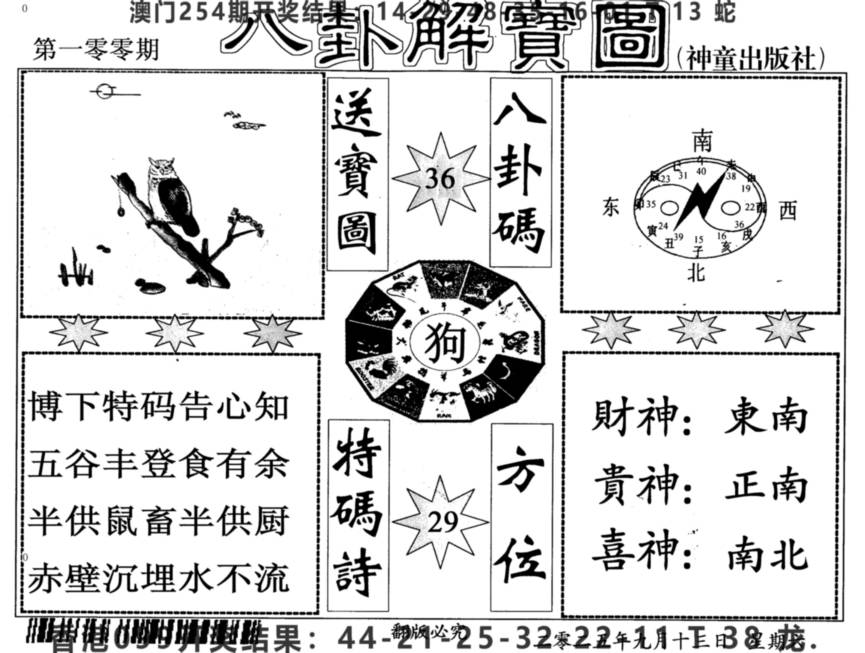 澳门254期开奖结果：14-29-48-
13 蛇
八卦解寶圖
第一零零期
(神童出版社)
送寶圖
36
八卦碼
南
东
西
北
巳 午 未
23 31 40 38
19
35
22
24
36
39 15 16
寅 丑 子 亥 戌
狗
博下特码告心知
五谷丰登食有余
半供鼠畜半供厨
赤壁沉埋水不流
特碼詩
29
方位
財神：東南
貴神：正南
喜神：南北
香港099开奖结果：44-21-25-32-22-11 T 38 龙.
翻版必究
二零二五年九月十三日